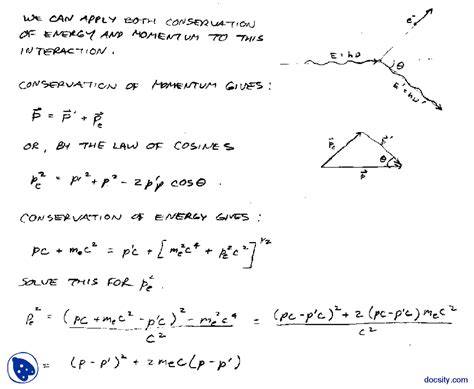 WE CAN APPLY BOTH CONSERVATION
OF ENERGY AND MOMENTUM TO THIS
INTERACTION.
e⁻
E=hν
θ
E'=hν'
CONSERVATION OF MOMENTUM GIVES:
p⃗ = p⃗' + p⃗ₑ
OR, BY THE LAW OF COSINES
θ
p⃗
pₑ² = p'² + p² - 2p'p cosθ.
CONSERVATION OF ENERGY GIVES:
pc + mₑc² = p'c + [mₑ²c⁴ + pₑ²c²]^1/2
SOLVE THIS FOR pₑ².
pₑ² = ((pc + mₑc² - p'c)² - mₑ²c⁴)/c² = ((pc - p'c)² + 2(pc - p'c)mₑc²)/c²
= (p - p')² + 2mₑc(p - p')
docsity.com